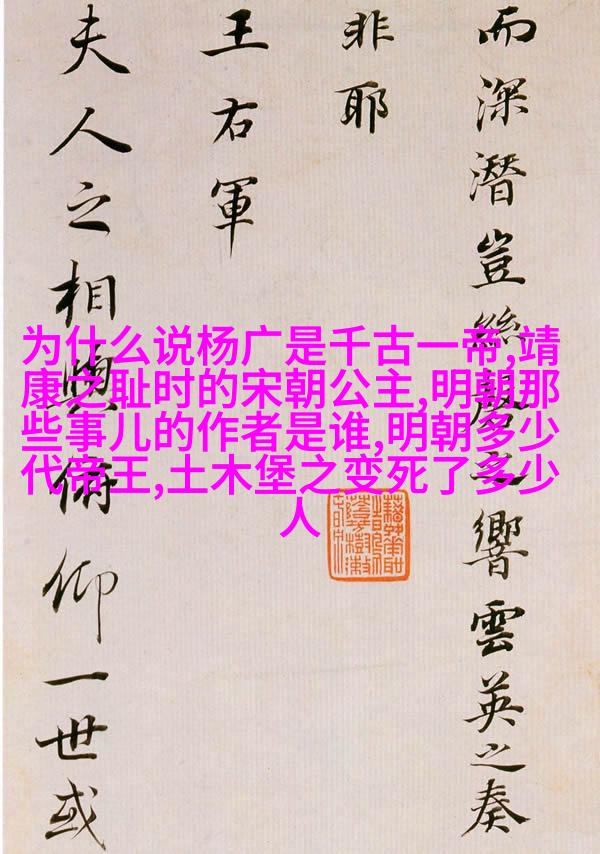 为什么说杨广是千古一帝,靖
康之耻时的宋朝公主,明朝那
些事儿的作者是谁,明朝多少
代帝王,土木堡之变死了多少
人
而深潛豈絲之響雲英之奏
非耶
王右軍
夫人之相與俯仰一世或